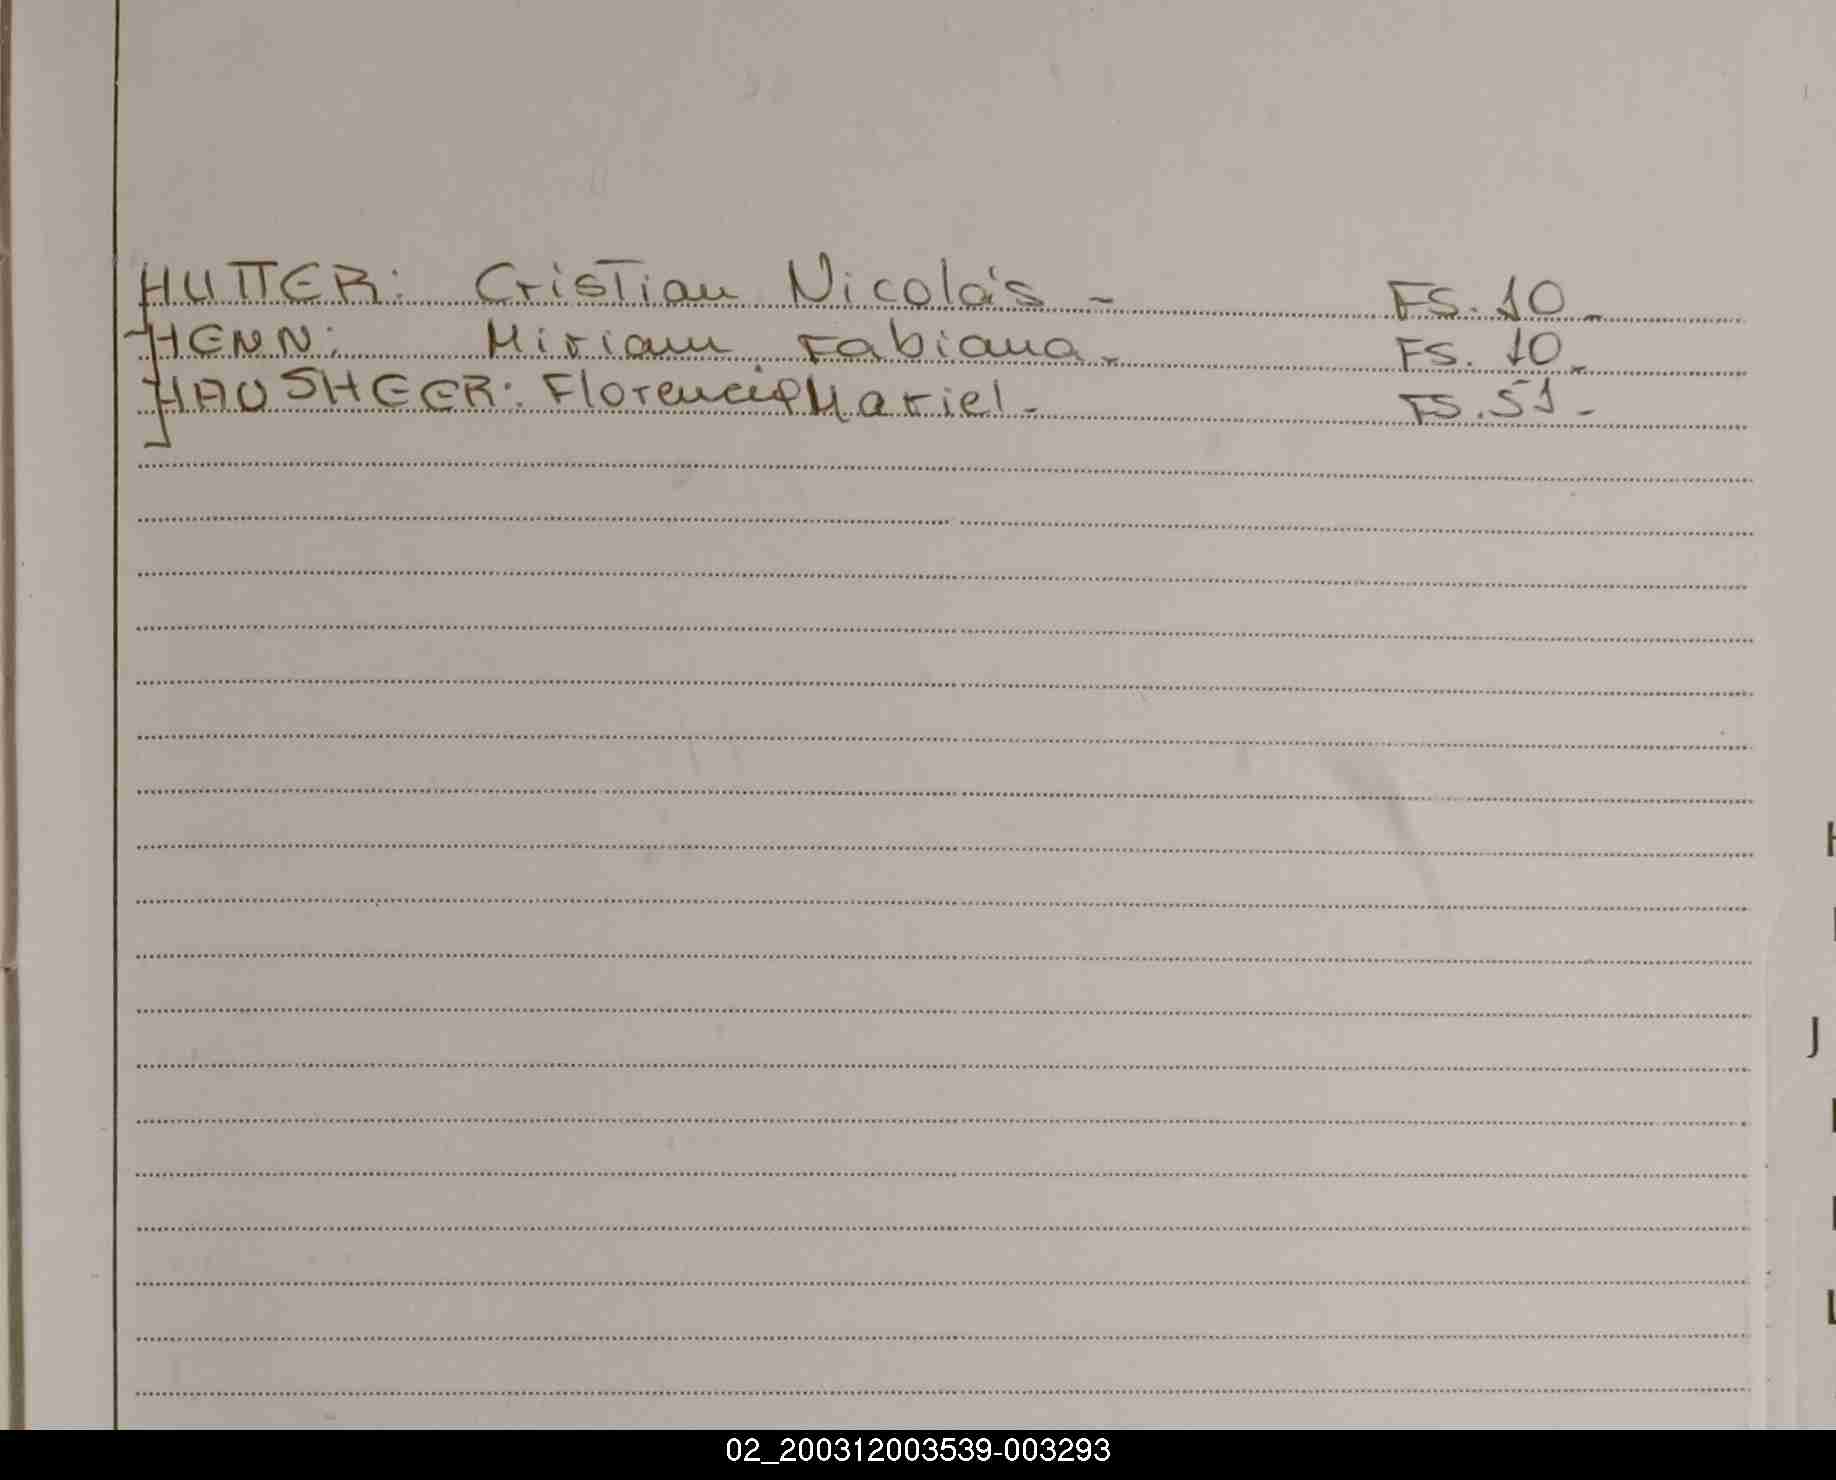 HUTTER: Cristian Nicolás - FS. 10 -
HENN: Miriam Fabiana - FS. 10 -
HAUSHEER: Florencia Mariel - FS. 51 -
H
J
L
02_200312003539-003293